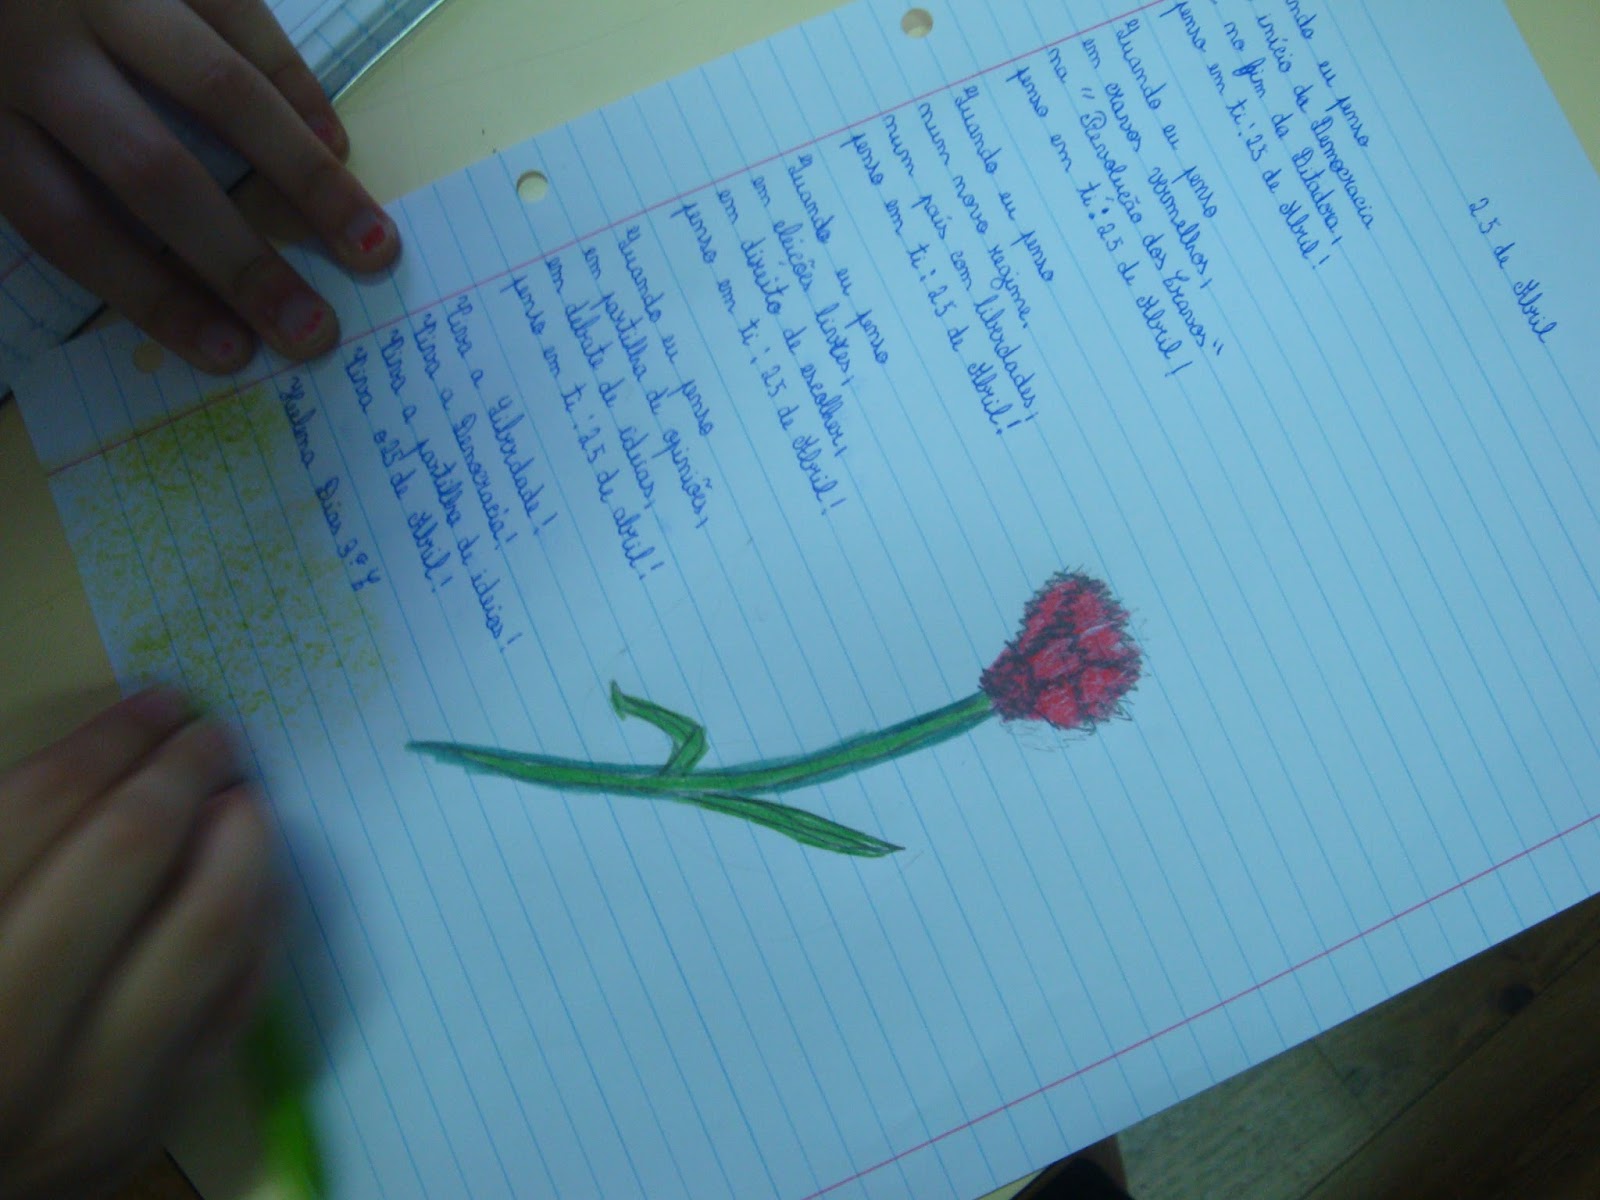 25 de Abril
eu penso
início da Democracia
no fim da Ditadura!
penso em ti: 25 de Abril!
Quando eu penso
em cravos vermelhos,
na "Revolução dos Cravos"
penso em ti: 25 de Abril!
Quando eu penso
num novo regime,
num país com liberdades!
penso em ti: 25 de Abril!
Quando eu penso
em eleições livres,
em direito de escolher,
penso em ti: 25 de Abril!
Quando eu penso
em partilha de opiniões,
em debate de ideias,
penso em ti: 25 de abril!
Viva a Liberdade!
Viva a Democracia!
Viva a partilha de ideias!
Viva o 25 de Abril!
Dias 3.º Y